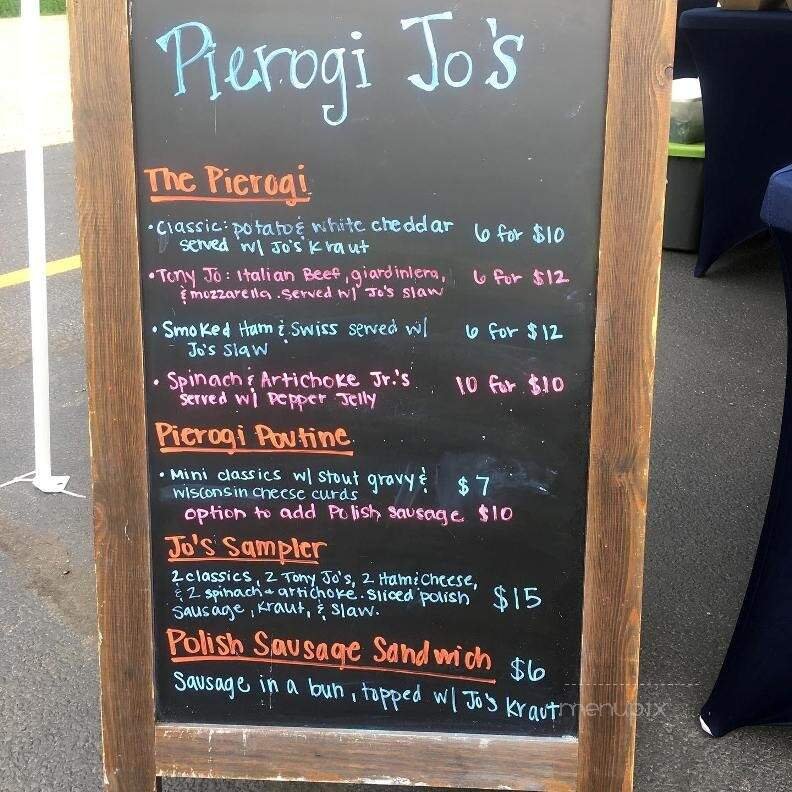 Pierogi Jo's
The Pierogi
• Classic: potato & white cheddar 6 for $10
served w/ Jo's Kraut
• Tony Jo: Italian Beef, giardiniera, 6 for $12
& mozzarella. served w/ Jo's slaw
• Smoked Ham & Swiss served w/ 6 for $12
Jo's slaw
• Spinach & Artichoke Jr.'s 10 for $10
served w/ Pepper Jelly
Pierogi Poutine
• Mini classics w/ stout gravy & $7
wisconsin cheese curds
option to add Polish sausage $10
Jo's Sampler
2 classics, 2 Tony Jo's, 2 Ham & Cheese,
& 2 spinach + artichoke. Sliced polish $15
sausage, kraut, & slaw.
Polish Sausage Sandwich $6
Sausage in a bun, topped w/ Jo's Kraut
menupix